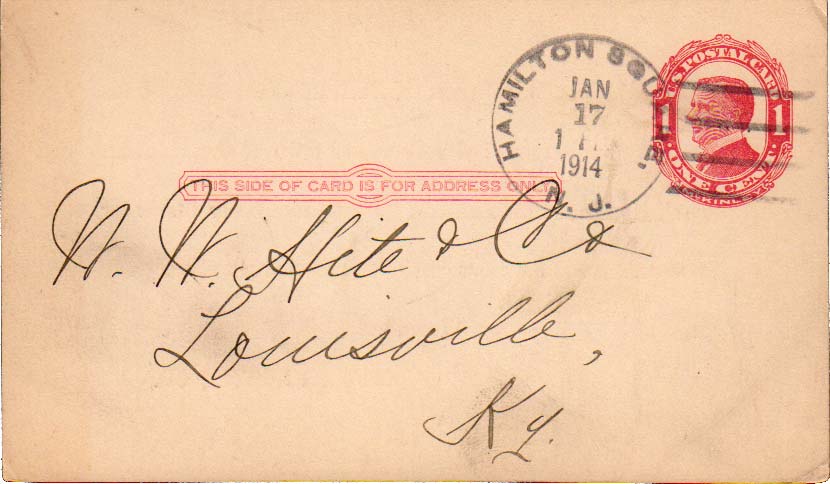 HAMILTON SQUARE
JAN
17
1914
N. J.
U.S. POSTAL CARD
1 1
ONE CENT
McKINLEY
THIS SIDE OF CARD IS FOR ADDRESS ONLY
W. W. Hite & Co
Louisville,
Ky.